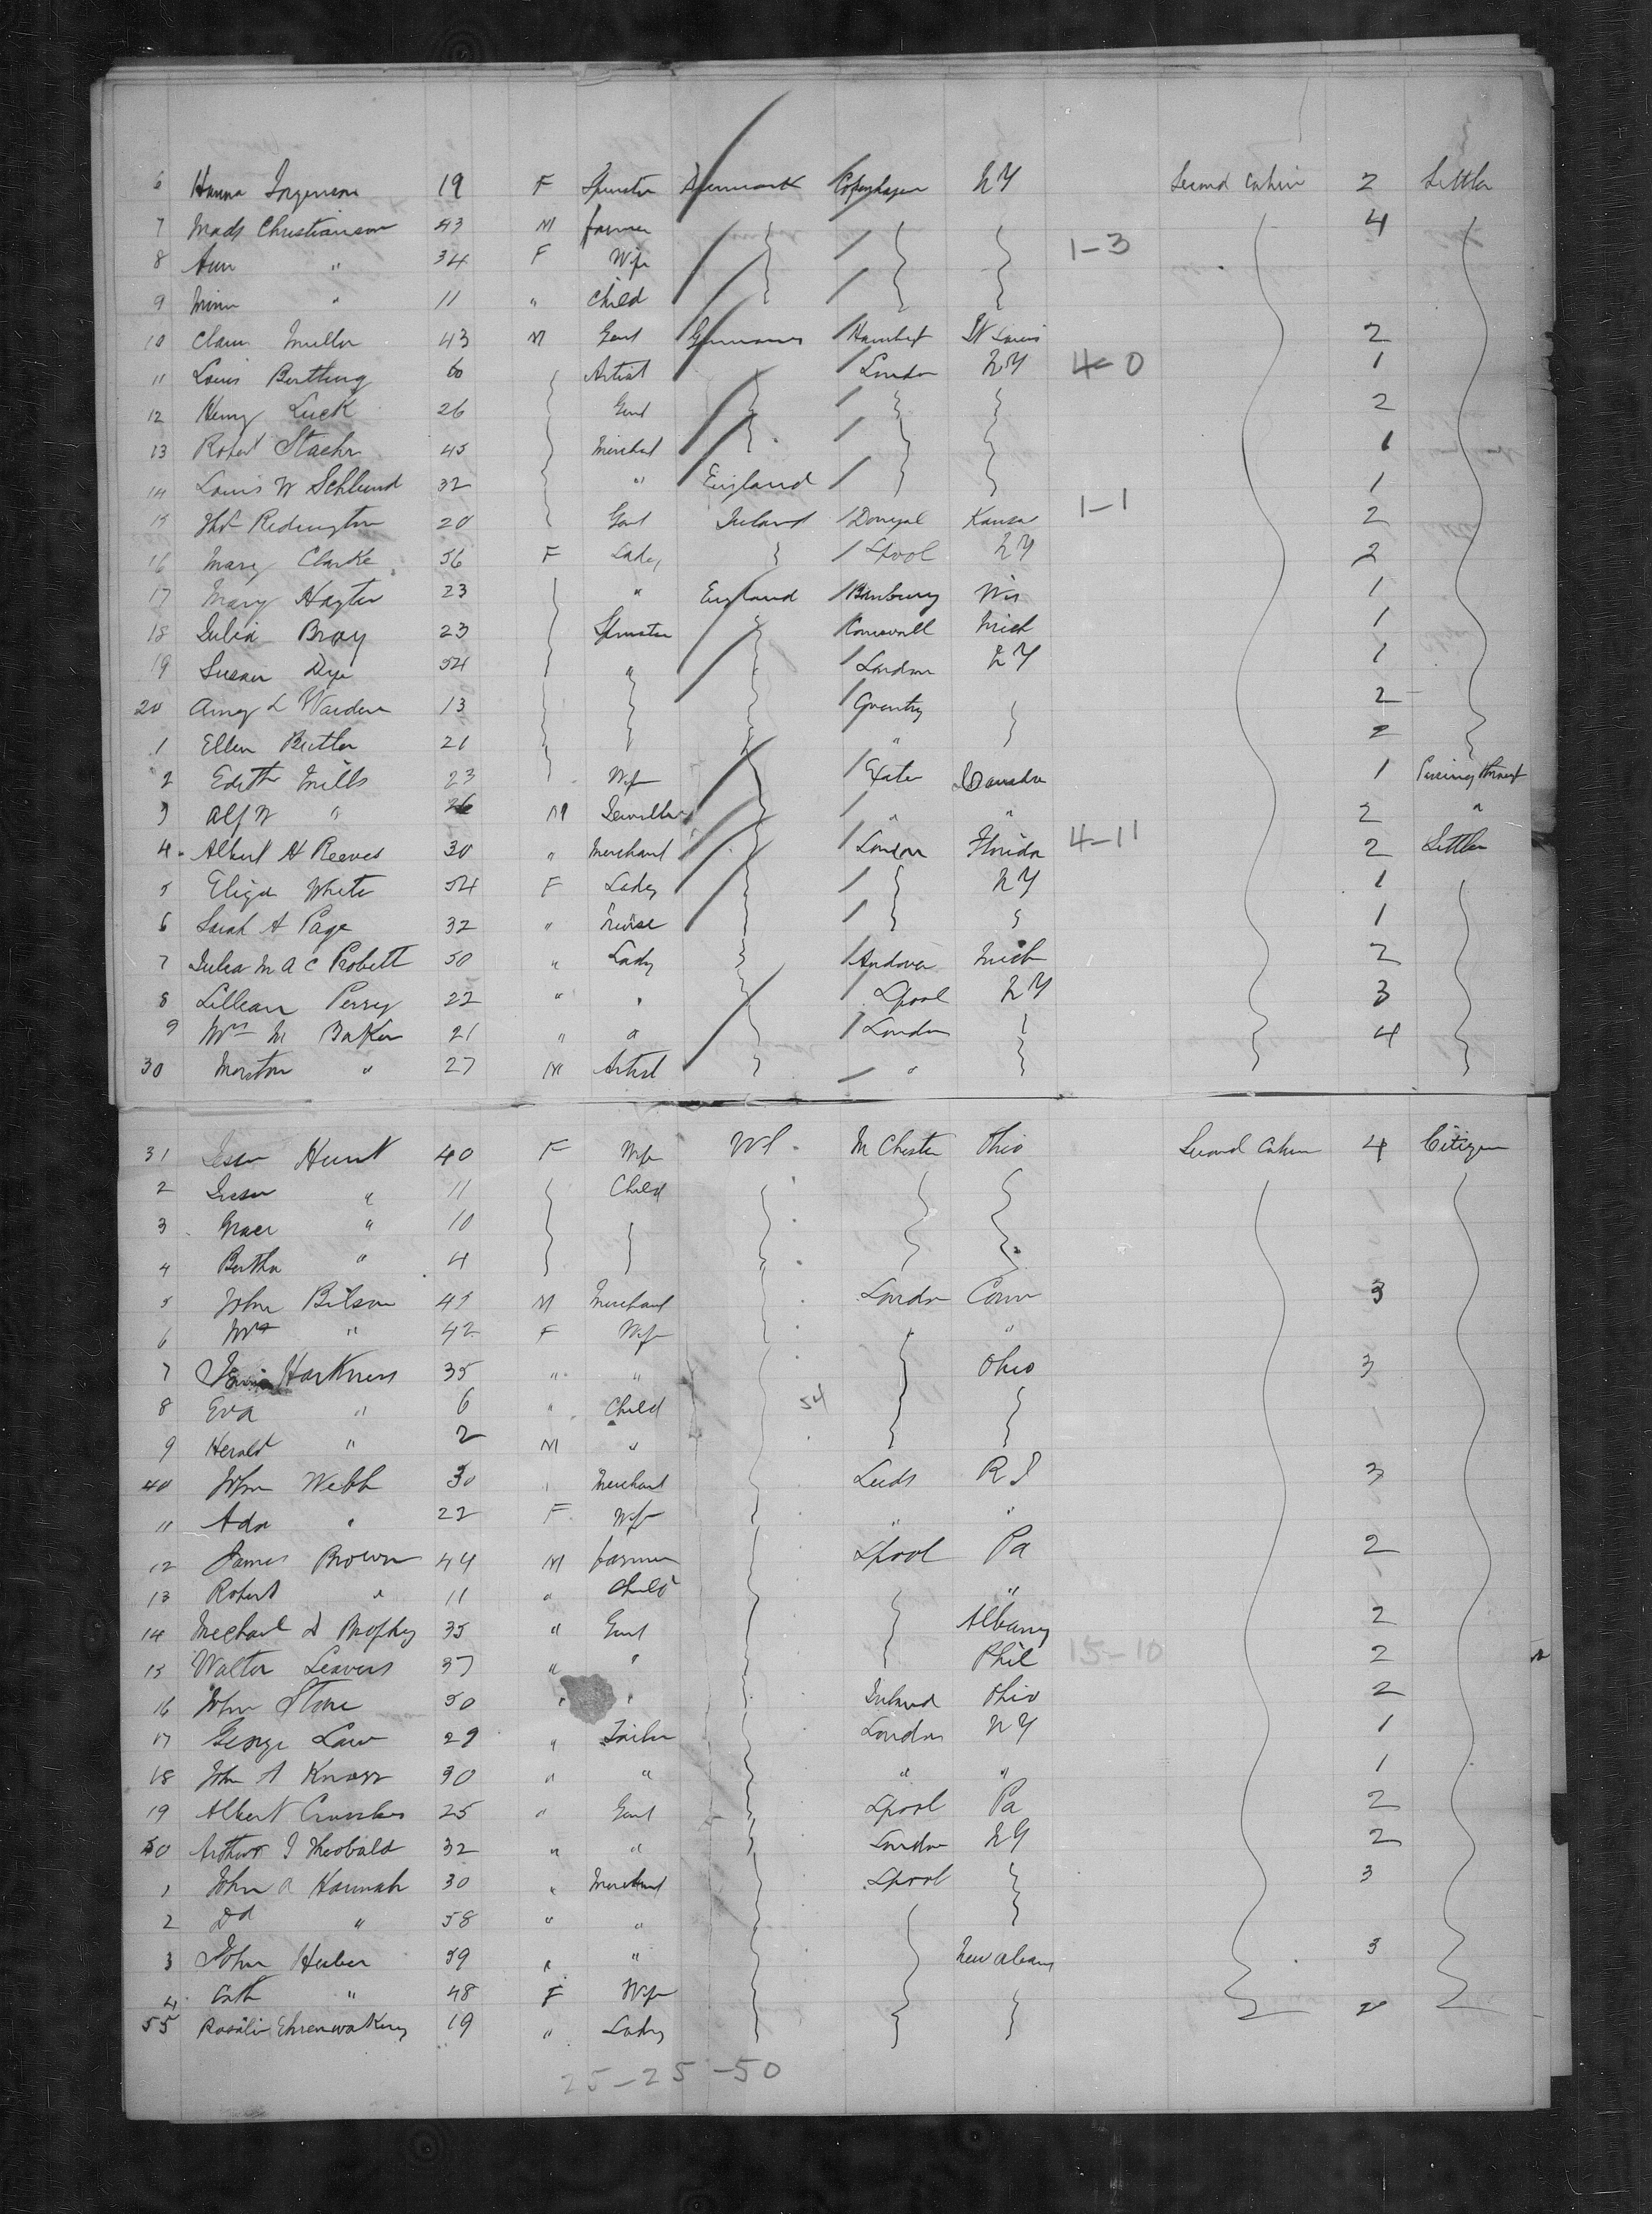 6 Hanna Ingerson 19 F Spinster Denmark Copenhagen NY Second Cabin 2 Settler
7 Mads Christianson 43 M farmer 4
8 Ann " 34 F Wife 1-3
9 Minn " 11 " Child
10 Claus Muller 43 M Gent Germany St Louis 2
11 Louis 60 Artist London NY 4-0 1
12 Henry Luck 26 Gent 2
13 Robert Staehr 45 Merchant 1
14 Louis W Schlund 32 " England 1
15 Thos Redington 20 Gent Ireland Donegal Kansas 1-1 2
16 Mary Clarke 56 F Lady Lpool NY 2
17 Mary Hayter 23 " England Banbury Wis 1
18 Julia Bray 23 Spinster Cornwall Mich 1
19 Susan Dye 54 " London NY 1
20 Amy L Warden 13 Coventry 2
1 Ellen Butler 21 " 2
2 Edith Mills 23 Wife Exeter Canada 1
3 Alf W " 26 M " " 2 "
4 Albert H Reeves 30 " Merchant London Florida 4-11 2 Settler
5 Eliza White 54 F Lady NY 1
6 Sarah A Page 32 " Nurse 1
7 Julia M A C Probett 50 " Lady Andover Mich 2
8 Lillian Perry 22 " " Lpool NY 3
9 Mrs M Baker 21 " " London 4
30 Morton " 27 M Artist "
31 Hunt 40 F Wife M Chester Ohio Second Cabin 4 Citizen
2 " 11 Child
3 Grace " 10
4 Bertha " 4
5 John Bilson 45 M Merchant London Conn 3
6 Mrs " 42 F Wife "
7 Harkness 35 " " Ohio 3
8 Eva " 6 " Child 54
9 Herald " 2 M "
40 John Webb 30 " Merchant Leeds R I 3
11 Ada " 22 F Wife " "
12 James Brown 44 M farmer Lpool Pa 2
13 Robert " 11 " Child "
14 Michael D Brophy 35 " Gent Albany 2
15 Walter Leavers 37 " " Phil 15-10 2
16 John Stone 50 " " Ireland Ohio 2
17 George Law 29 " Tailor London NY 1
18 John A Knorr 30 " " " " 1
19 Albert 25 " Gent Lpool Pa 2
50 Arthur J Theobald 32 " " London NY 2
1 John A Hannah 30 " Merchant Lpool 3
2 Dd " 58 " "
3 John Huber 59 " " New Orleans 3
4 Cath " 48 F Wife
55 Rosalie 19 " Lady 2
25-25-50